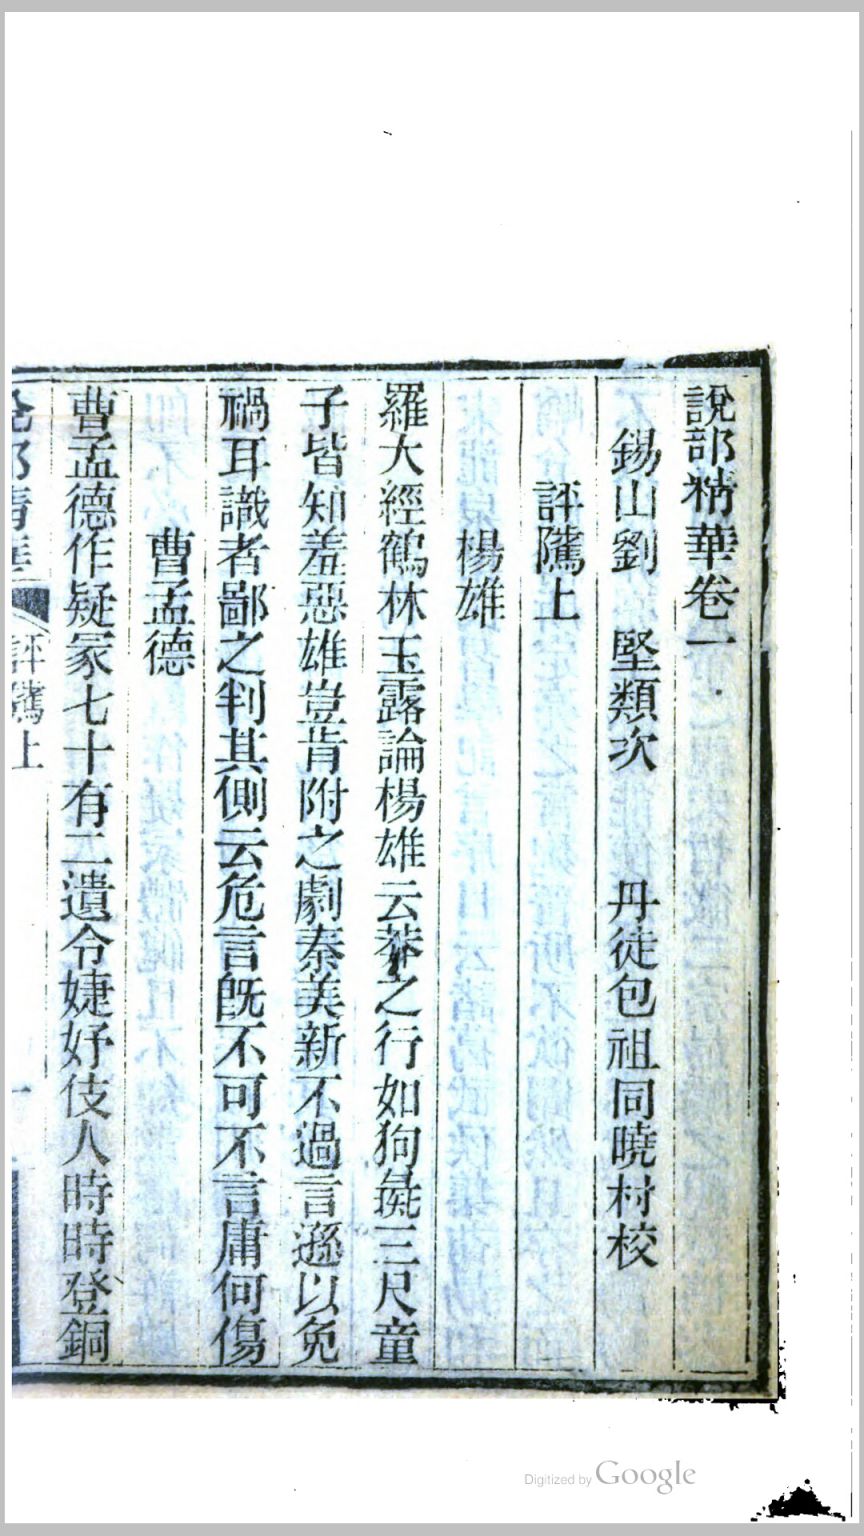 說部精華卷一
錫山劉　堅類次　丹徒包祖同曉村校
評隲上
楊雄
羅大經鶴林玉露論楊雄云莽之行如狗彘三尺童
子皆知羞惡雄豈肯附之劇秦美新不過言遜以免
禍耳識者鄙之判其側云危言既不可不言庸何傷
曹孟德
曹孟德作疑冢七十有二遺令婕妤伎人時時登銅
評隲上
一
Digitized by Google